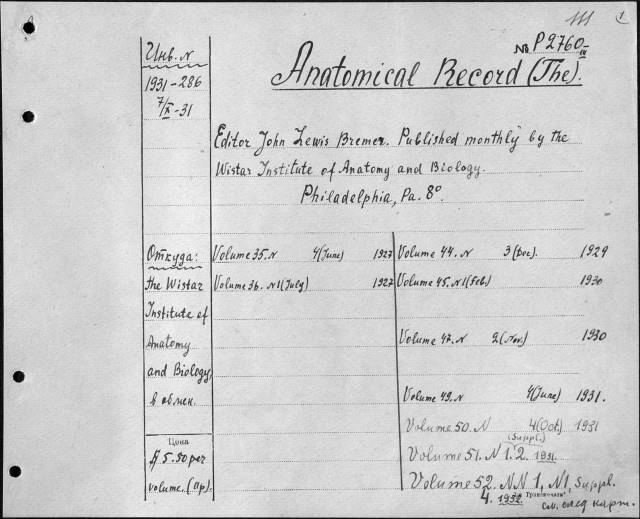 111 1
Инв. N
№ P2760 III
1931-286
7/X-31
Anatomical Record (The).
Editor John Lewis Bremer. Published monthly by the
Wistar Institute of Anatomy and Biology.
Philadelphia, Pa. 8°.
Откуда:
the Wistar
Institute of
Anatomy
and Biology,
в обмен.
Volume 35. N 4 (June) 1927
Volume 36. N1 (July) 1927
Volume 44. N 3 (Dec). 1929
Volume 45. N1 (Feb.) 1930
Volume 47. N 2 (Nov.) 1930
Volume 49. N 4 (June) 1931.
Volume 50. N 4 (Oct.) 1931
(Suppl.)
Volume 51. N 1. 2. 1931.
Volume 52. NN 1, N1, Suppl.
4. 1932.
Цена
$ 5.50 per
volume. (пр).
"Транспечати"
см. след карт.